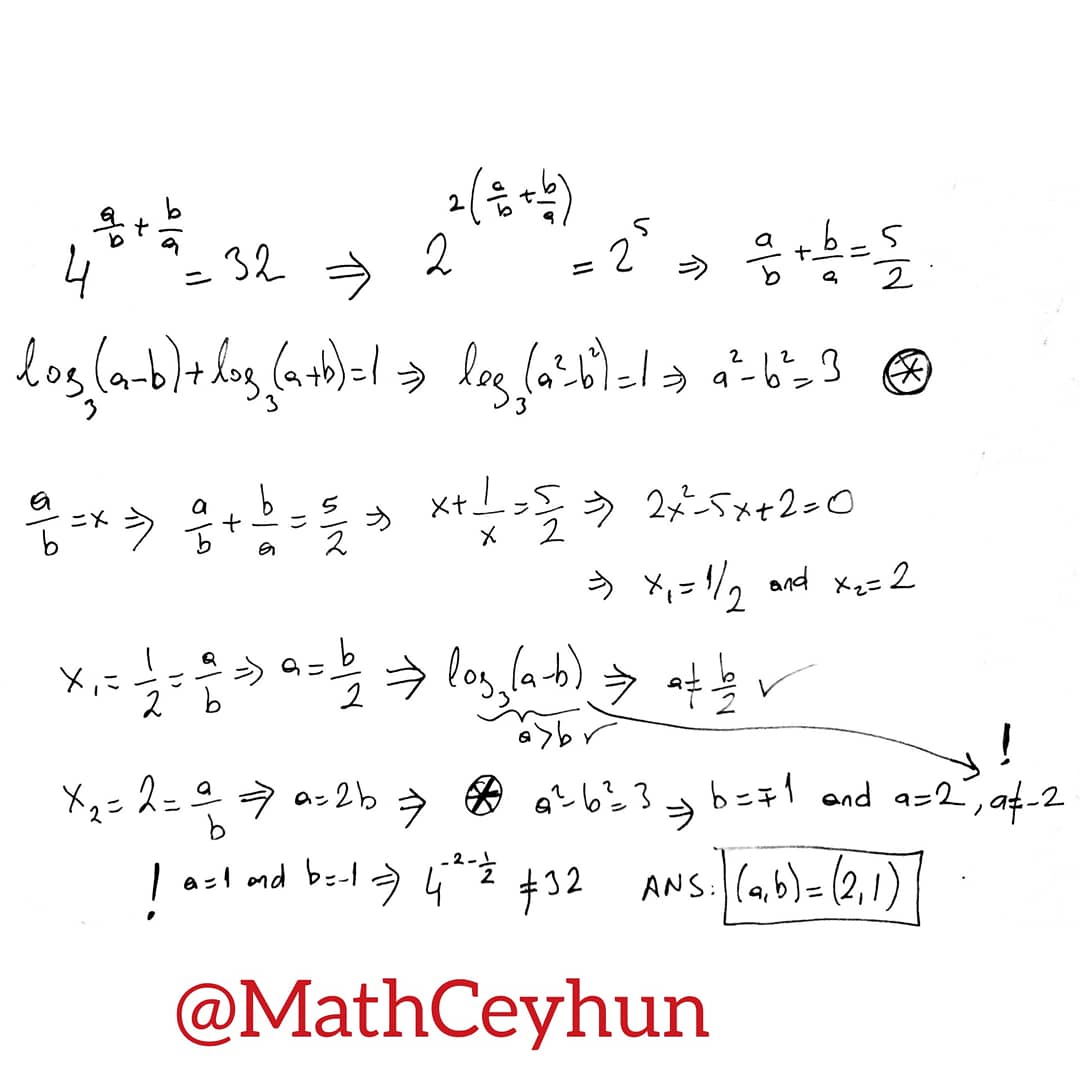 4^(a/b + b/a) = 32 ⇒ 2^(2(a/b + b/a)) = 2^5 ⇒ a/b + b/a = 5/2 .
log₃(a-b) + log₃(a+b) = 1 ⇒ log₃(a²-b²) = 1 ⇒ a²-b² = 3 ⊛
a/b = x ⇒ a/b + b/a = 5/2 ⇒ x + 1/x = 5/2 ⇒ 2x²-5x+2=0
⇒ x₁ = 1/2 and x₂ = 2
x₁ = 1/2 = a/b ⇒ a = b/2 ⇒ log₃(a-b) ⇒ a ≠ b/2 ✓
a>b ✓ !
x₂ = 2 = a/b ⇒ a = 2b ⇒ ⊛ a²-b²=3 ⇒ b = ∓1 and a=2, a≠-2
! a=1 and b=-1 ⇒ 4^(-2-1/2) ≠ 32 ANS: (a,b) = (2,1)
@MathCeyhun